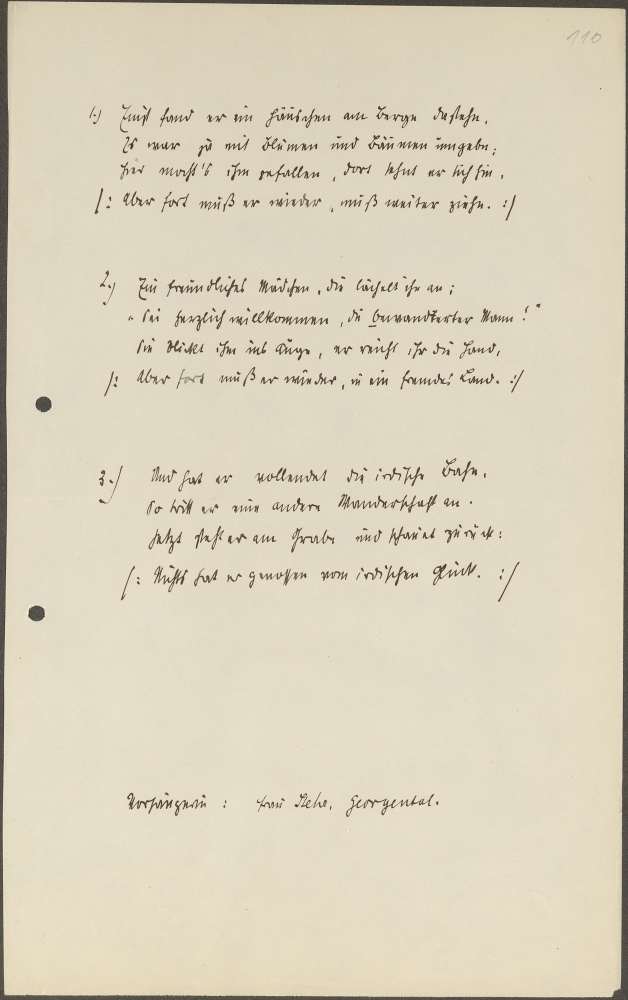 110
1.) Einst fand er ein Häuschen am Berge dastehn,
Es war ja mit Blumen und Bäumen umgebn;
Hier möcht's ihm gefallen, dort sehnt er sich hin,
/: Aber fort muß er wieder, muß weiter ziehn. :/
2.) Ein freundliches Mädchen, die lächelt ihn an;
"Sei herzlich willkommen, du bewanderter Mann!"
Sie blickt ihm ins Auge, er reicht ihr die Hand,
/: Aber fort muß er wieder, in ein fremdes Land. :/
3.) Und hat er vollendet die irdische Bahn,
So tritt er eine andere Wanderschaft an.
Jetzt steht er am Grabe und schauet zurück:
/: Nichts hat er genossen vom irdischen Glück. :/
Vorsängerin : Frau Georgental.